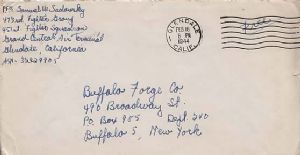 Pfc Samuel W. Sadovsky
473rd Fighter Group
451st Fighter Squadron
Grand Central Air Terminal
Glendale, California
ASN-
GLENDALE
FEB 16
6 PM
1944
CALIF.
Free
Buffalo Forge Co
490 Broadway St.
P.O. Box 985 Dept 340
Buffalo 5, New York